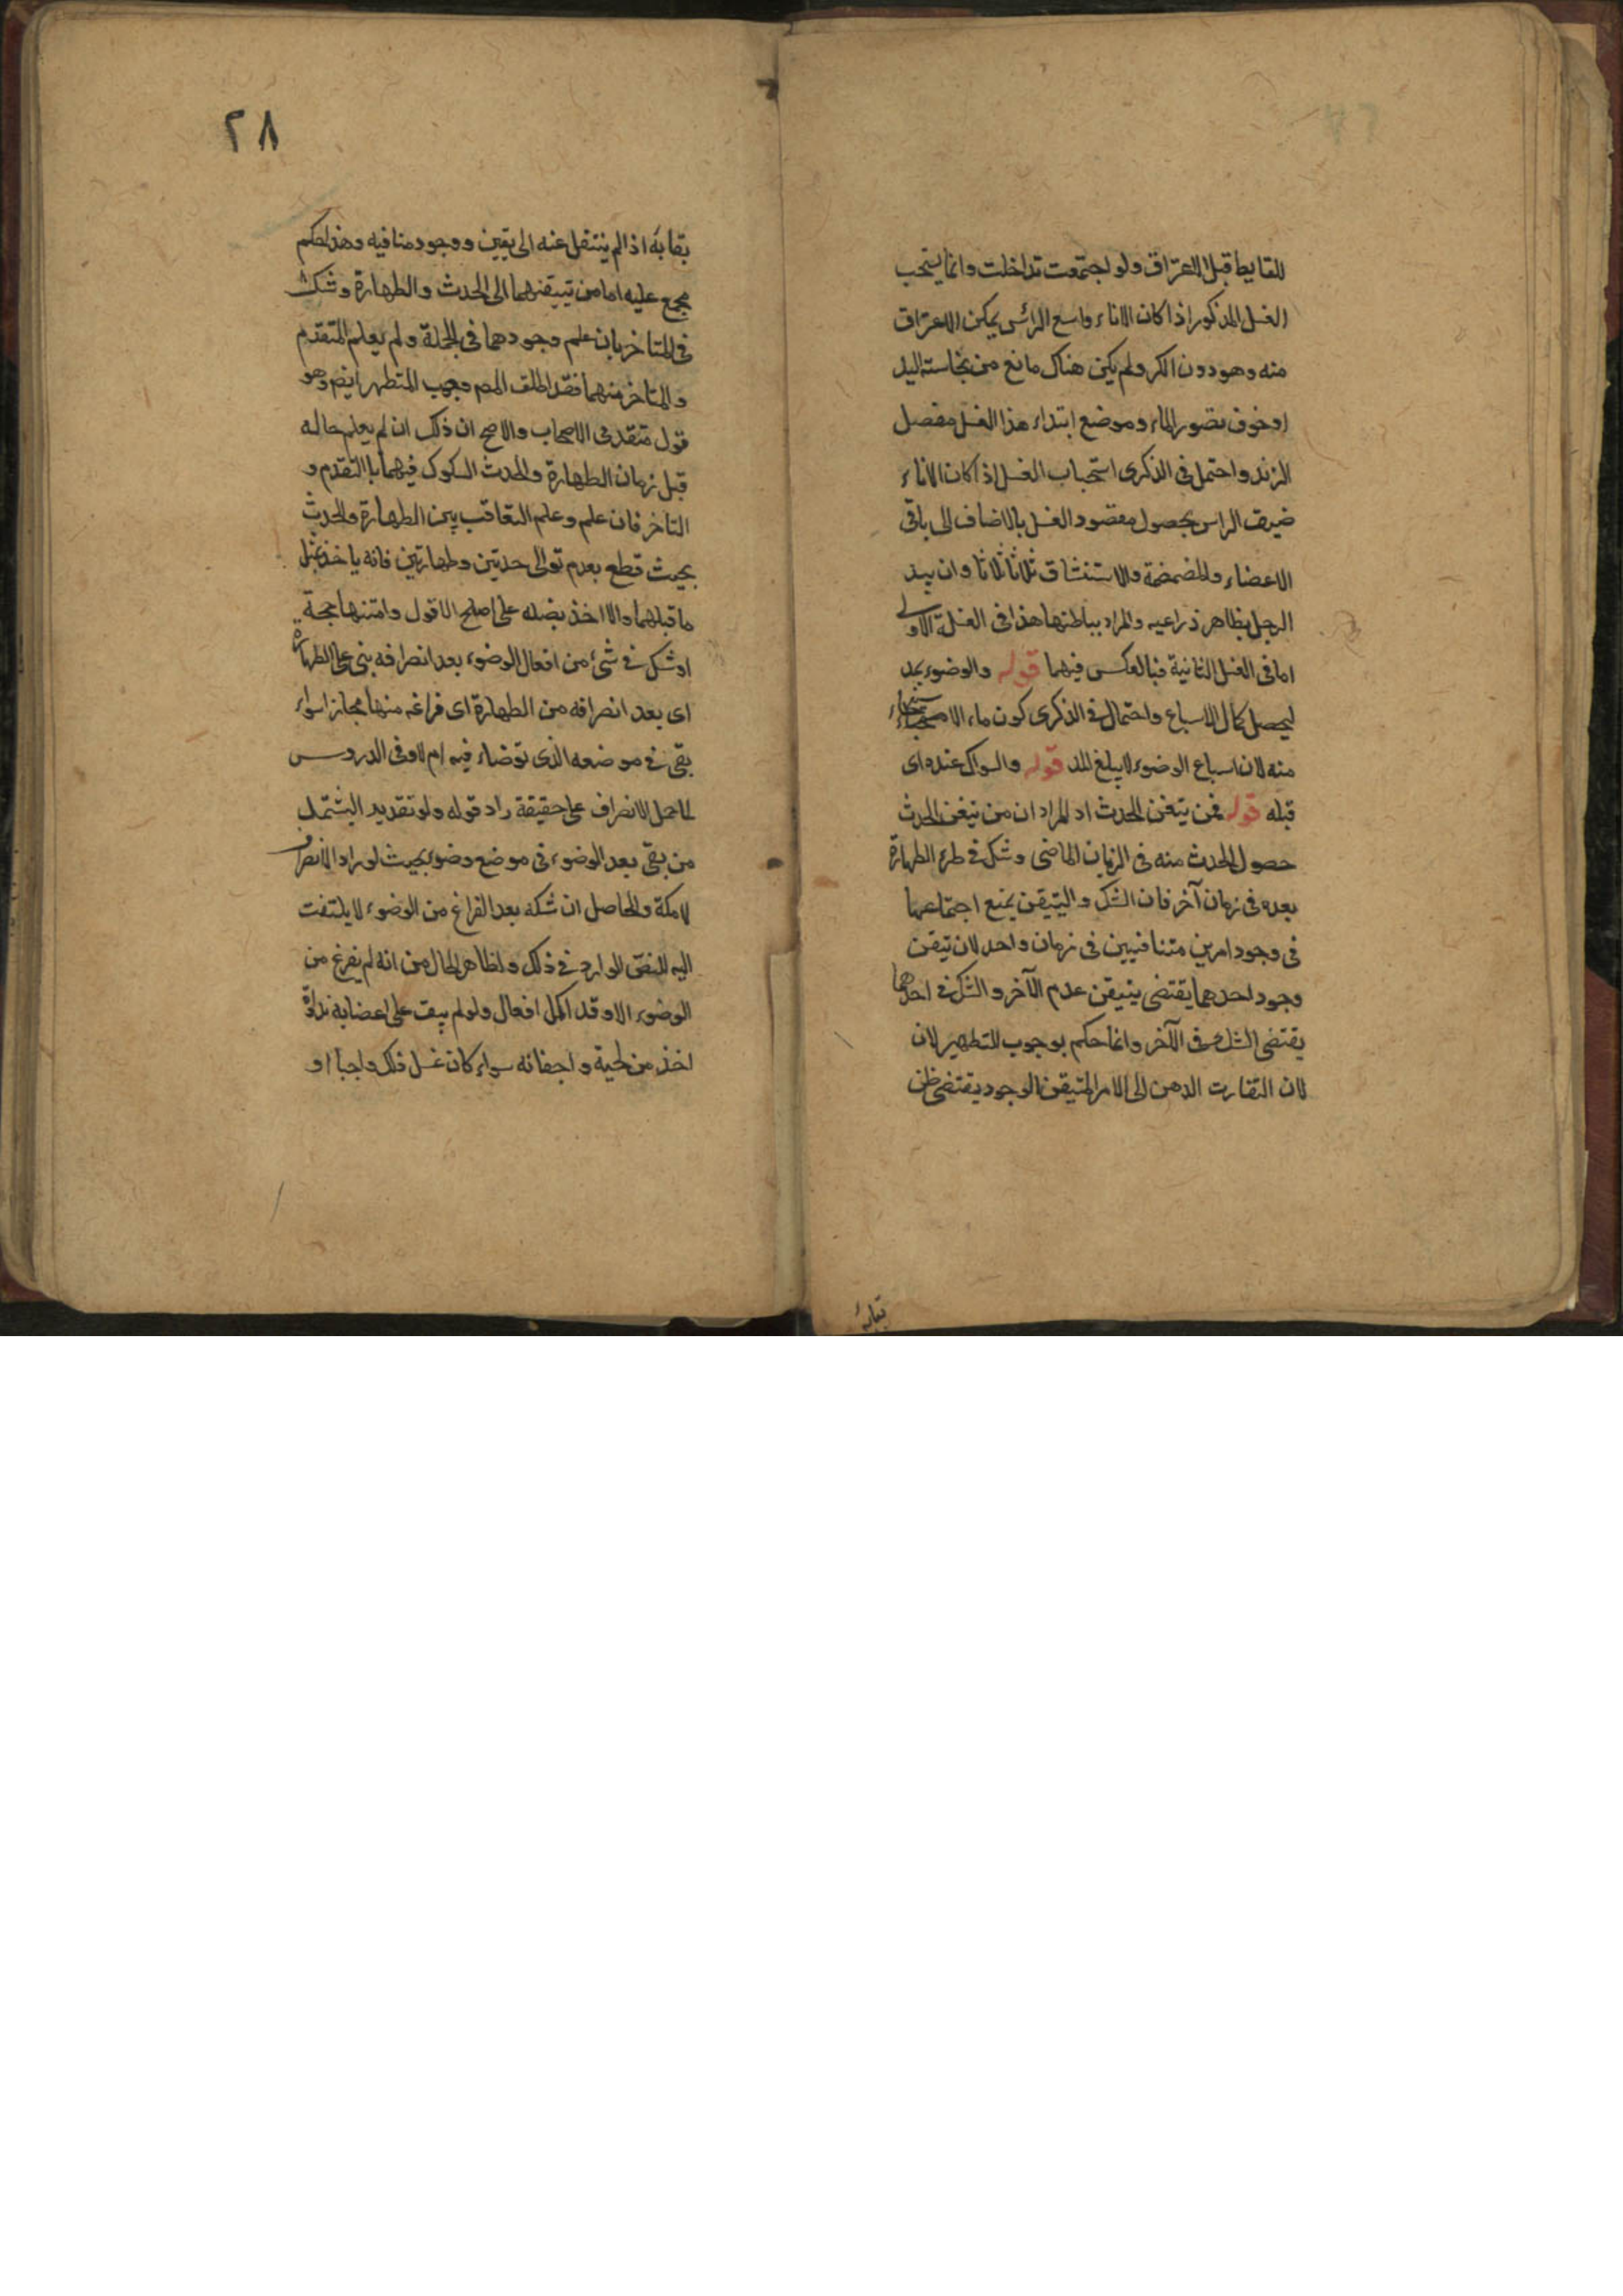 للغايط قبل الاغتراف ولو اجتمعت تداخلت وانما يستحب
الغسل المذكور اذا كان الاناء واسع الرأس يمكن الاغتراف
منه وهو دون الكر ولم يكن هناك مانع من نجاسته اليد
او خوف بضور الماء وموضع ابتداء هذا الغسل مفصل
الزند واحتمل في الذكرى استحباب الغسل اذا كان الاناء
ضيق الراس بحصول مقصود الغسل بالاضاف الى باقي
الاعضاء والمضمضة والاستنشاق ثلاثا ثلاثا وان يبد
الرجل بظاهر ذراعيه والمراد بباطنها هذا في الغسلة الاولى
اما في الغسل الثانية فبالعكس فيهما قوله والوضوء بمد
ليحصل كمال الاسباغ واحتمال في الذكرى كون ماء الاستنجاء
منه لان اسباغ الوضوء لا يبلغ المد قوله والسواك عنده اى
قبله قوله فمن يتقن الحدث اد المراد ان من تيقن الحدث
حصول الحدث منه في الزمان الماضى وشك في طرء الطهارة
بعده في زمان آخر فان الشك والتيقن يمنع اجتماعهما
في وجود امرين متنافيين في زمان واحد لان تيقن
وجود احدهما يقتضى يتيقن عدم الآخر والشك في احدهما
يقتضى الشك في الآخر وانما حكم بوجوب للتطهير لان
لان التفارت الدهن الى الامر المتيقن الوجود يقتضى ظن
بقائه
٢٨
بقابه اذا لم ينتقل عنه الى يقين ووجود منافيه وهذا الحكم
مجمع عليه اما من تييقنهما الى الحدث والطهارة وشك
في المتاخر بان علم وجودهما في الجملة ولم يعلم المتقدم
والمتاخر منهما فقد اطلق المص وجوب المتطهر ايضم وهو
قول متقدمى الاصحاب والاصح ان ذلك ان لم يعلم حاله
قبل زمان الطهارة والحدث السكوك فيهما باالتقدم و
التاخر فان علم وعلم التعاقب بين الطهارة والحدث
بحيث قطع بعدم توالى حدثين وطهارتين فانه ياخذ بمثل
ما قبلهما والا اخذ بضده على اصلح الاقول وامتنها حجة
اوشك في شئ من افعال الوضوء بعد انصرافه بنى على الطهارة
اى بعد انصرافه من الطهارة اى فراغه منها مجازا سواء
بقى في موضعه الذى توضاء فيه ام لا وفى الدروس
لما حمل الانصراف على حقيقة زاد قوله ولو تقديرا ليشتمل
من بقى بعد الوضوء في موضع وضوء بحيث لو راد الانصراف
لامكة والحاصل ان شكه بعد الفراغ من الوضوء لا يلتفت
اليه للنص الوارد في ذلك ولظاهر الحال من انه لم يفرغ من
الوضوء الا وقد اكمل افعال ولو لم يبق على اعضايه نداوة
اخذ من لحية واجفانه سواء كان غسل ذلك واجبا او